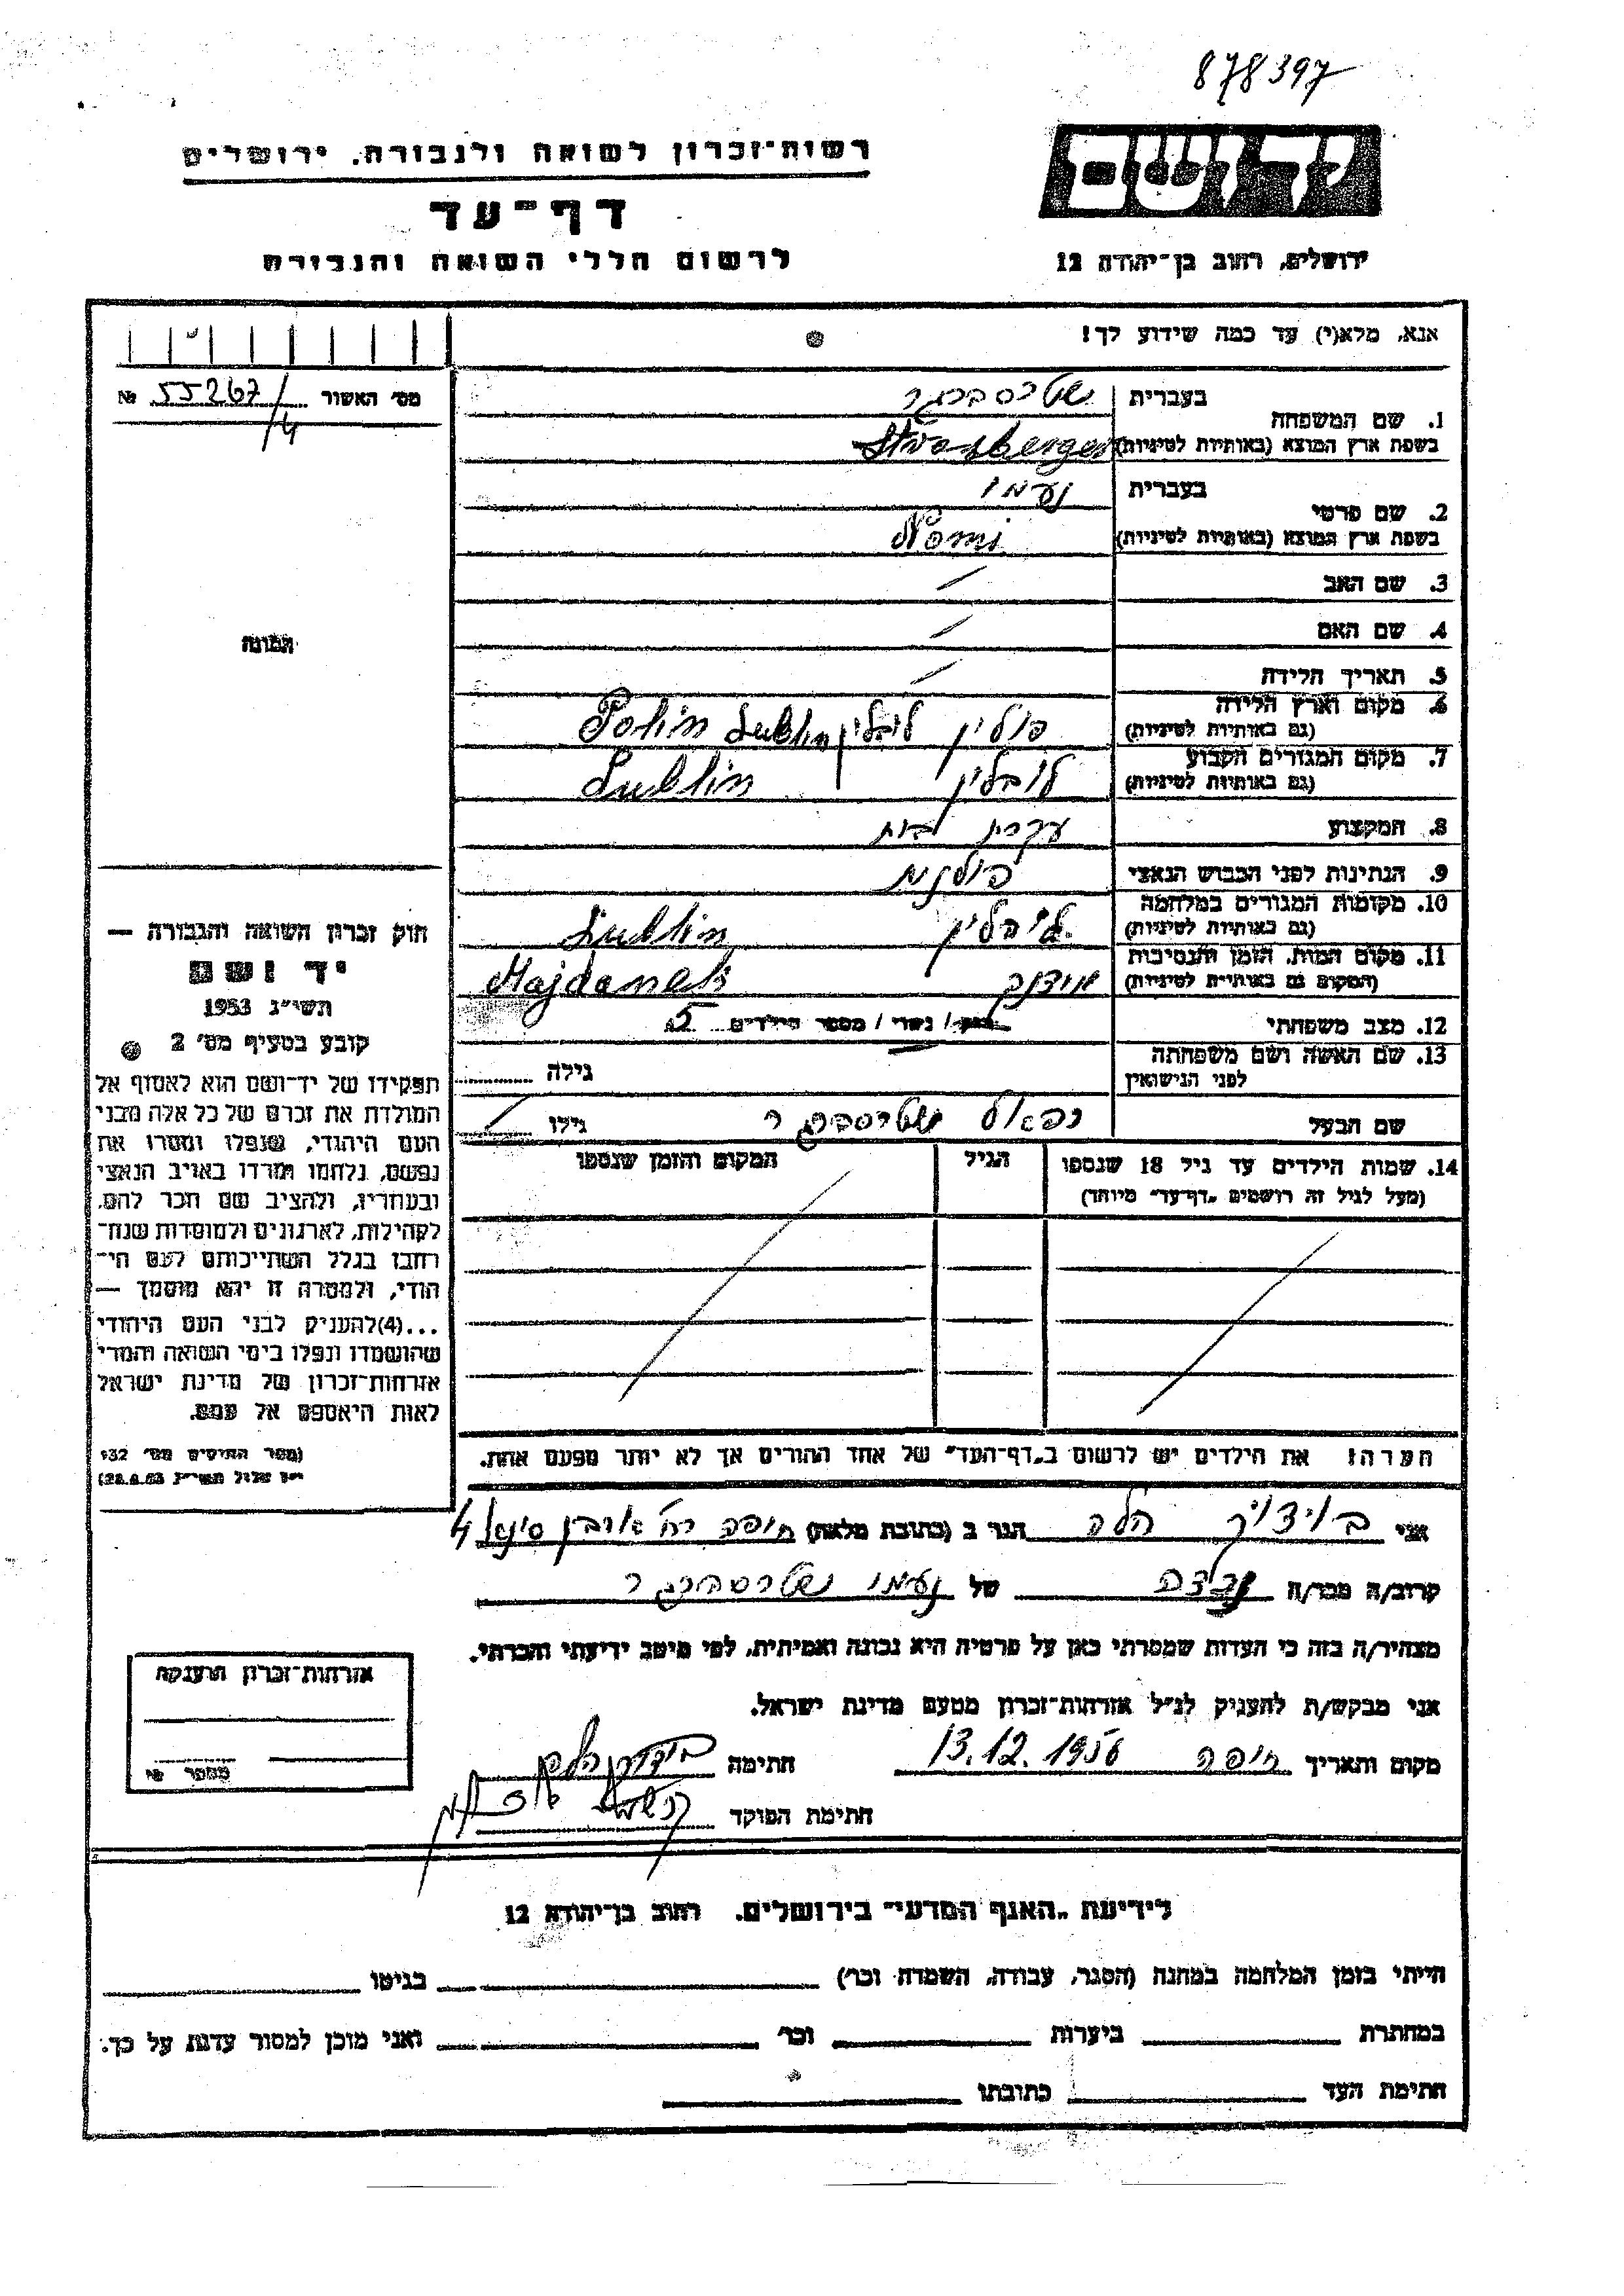 878397
רשות-זכרון לשואה ולגבורה, ירושלים
יד ושם
דף-עד
לרשום חללי השואה והגבורה
ירושלים, רחוב בן-יהודה 12
אנא, מלא(י) עד כמה שידוע לך!
מס׳ האשור 55267/4 №
1. שם המשפחה
בעברית שטרסברגר
בשפת ארץ המוצא (באותיות לטיניות) Strasberger
2. שם פרטי
בעברית נעמי
בשפת ארץ המוצא (באותיות לטיניות) Nomi
3. שם האב /
4. שם האם /
5. תאריך הלידה /
6. מקום וארץ הלידה
(גם באותיות לטיניות) פולין לובלין Polin Lublin
7. מקום המגורים הקבוע
(גם באותיות לטיניות) לובלין Lublin
8. המקצוע עקרת בית
9. הנתינות לפני הכבוש הנאצי פולנית
10. מקומות המגורים במלחמה
(גם באותיות לטיניות) לובלין Lublin
11. מקום המות, הזמן והנסיבות
(המקום גם באותיות לטיניות) Majdanek
12. מצב משפחתי רווק / נשוי / מספר הילדים 5
13. שם האשה ושם משפחתה
לפני הנישואין גילה
שם הבעל רפאל שטרסברגר גילו /
14. שמות הילדים עד גיל 18 שנספו
(מעל לגיל זה רושמים „דף-עד״ מיוחד)
הגיל
המקום והזמן שנספו
הערה! את הילדים יש לרשום ב„דף-העד״ של אחד ההורים אך לא יותר מפעם אחת.
התמונה
חוק זכרון השואה והגבורה —
יד ושם
תשי״ג 1953
קובע בסעיף מס׳ 2
תפקידו של יד-ושם הוא לאסוף אל
המולדת את זכרם של כל אלה מבני
העם היהודי, שנפלו ומסרו את
נפשם, נלחמו ומרדו באויב הנאצי
ובעוזריו, ולהציב שם וזכר להם,
לקהילות, לארגונים ולמוסדות שנח-
רבו בגלל השתייכותם לעם הי-
הודי, ולמטרה זו יהא מוסמך —
...(4) להעניק לבני העם היהודי
שהושמדו ונפלו בימי השואה והמרי
אזרחות-זכרון של מדינת ישראל
לאות היאספם אל עמם.
(ספר החוקים מס׳ 132
י״ז אלול תשי״ג 28.8.53)
אני בוידיך הלה הגר ב (כתובת מלאה) חיפה רח׳ 4
קרוב/ה מכר/ה של נעמי שטרסברגר
מצהיר/ה בזה כי העדות שמסרתי כאן על פרטיה היא נכונה ואמיתית, לפי מיטב ידיעתי והכרתי.
אני מבקש/ת להעניק לנ״ל אזרחות-זכרון מטעם מדינת ישראל.
מקום ותאריך חיפה 13.12.1956 חתימה
חתימת הפוקד
אזרחות-זכרון הוענקה
מספר №
לידיעת „האגף המדעי״ בירושלים, רחוב בן-יהודה 12
הייתי בזמן המלחמה במחנה (הסגר, עבודה, השמדה וכו׳) בגיטו
במחתרת ביערות וכו׳ ואני מוכן למסור עדות על כך.
חתימת העד כתובתו